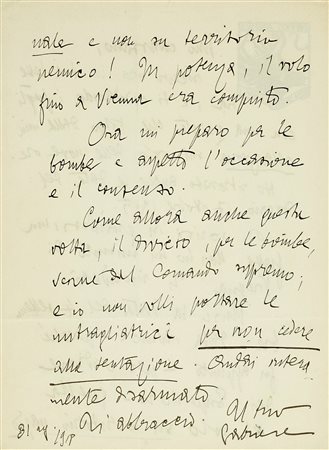 nale e non su territorio
nemico! In potenza, il volo
fino a Vienna era compiuto.
Ora mi preparo per le
bombe e aspetto l'occasione
e il consenso.
Come allora anche questa
volta, il divieto, per le bombe,
venne dal Comando supremo;
e io non volli portare le
mitragliatrici per non cedere
alla tentazione. Andai intera
mente disarmato.
Ti abbraccio. Il tuo
31 ag. 1918 Gabriele